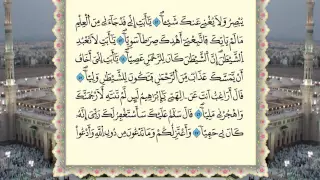 يُبْصِرُ وَلَا يُغْنِى عَنكَ شَيْـًٔا ۝ يَـٰٓأَبَتِ إِنِّى قَدْ جَآءَنِى مِنَ ٱلْعِلْمِ
مَا لَمْ يَأْتِكَ فَٱتَّبِعْنِىٓ أَهْدِكَ صِرَٰطًا سَوِيًّا ۝ يَـٰٓأَبَتِ لَا تَعْبُدِ
ٱلشَّيْطَـٰنَ إِنَّ ٱلشَّيْطَـٰنَ كَانَ لِلرَّحْمَـٰنِ عَصِيًّا ۝ يَـٰٓأَبَتِ إِنِّىٓ أَخَافُ
أَن يَمَسَّكَ عَذَابٌ مِّنَ ٱلرَّحْمَـٰنِ فَتَكُونَ لِلشَّيْطَـٰنِ وَلِيًّا ۝
قَالَ أَرَاغِبٌ أَنتَ عَنْ ءَالِهَتِى يَـٰٓإِبْرَٰهِيمُ لَئِن لَّمْ تَنتَهِ لَأَرْجُمَنَّكَ
وَٱهْجُرْنِى مَلِيًّا ۝ قَالَ سَلَـٰمٌ عَلَيْكَ سَأَسْتَغْفِرُ لَكَ رَبِّىٓ إِنَّهُۥ
كَانَ بِى حَفِيًّا ۝ وَأَعْتَزِلُكُمْ وَمَا تَدْعُونَ مِن دُونِ ٱللَّهِ وَأَدْعُوا۟